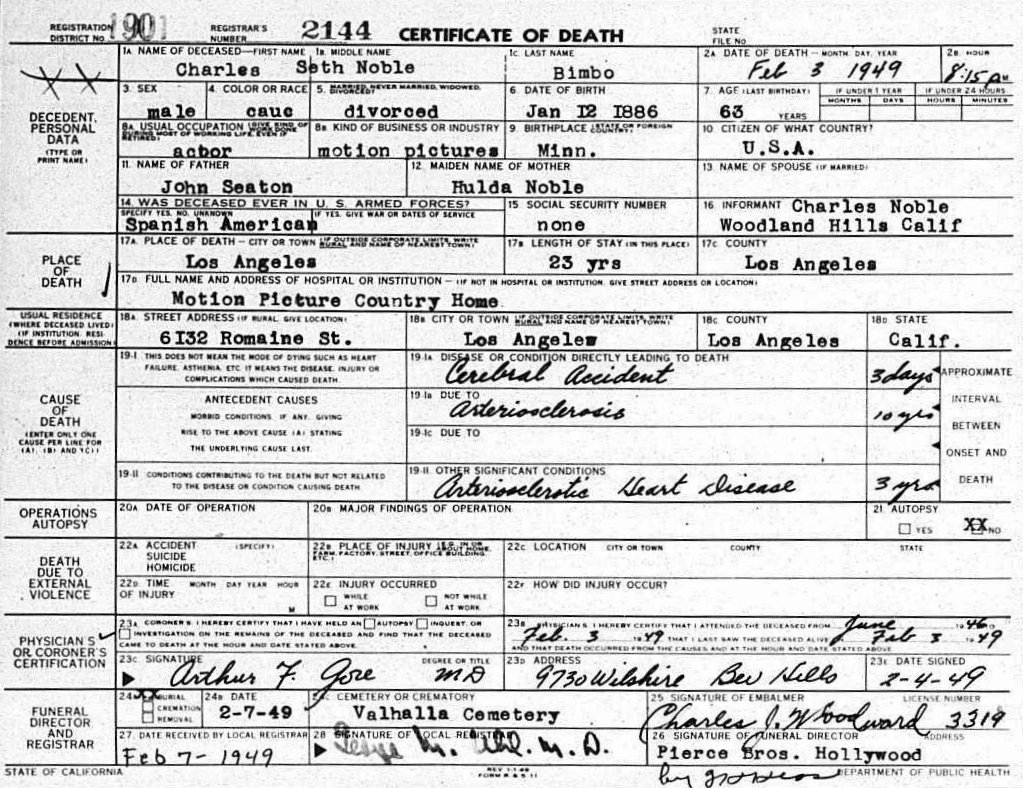 REGISTRATION DISTRICT NO. 1901 REGISTRAR'S NUMBER 2144 CERTIFICATE OF DEATH STATE FILE NO
1A NAME OF DECEASED—FIRST NAME 1B MIDDLE NAME 1C LAST NAME 2A DATE OF DEATH—MONTH, DAY, YEAR 2B HOUR
Charles Seth Noble Bimbo Feb 3 1949 8:15 PM
DECEDENT PERSONAL DATA (TYPE OR PRINT NAME)
3 SEX 4 COLOR OR RACE 5 MARRIED, NEVER MARRIED, WIDOWED, DIVORCED? 6 DATE OF BIRTH 7 AGE (LAST BIRTHDAY) IF UNDER 1 YEAR IF UNDER 24 HOURS
MONTHS DAYS HOURS MINUTES
male cauc divorced Jan I2 I886 63 YEARS
8A USUAL OCCUPATION (GIVE KIND OF WORK DONE DURING MOST OF WORKING LIFE, EVEN IF RETIRED) 8B KIND OF BUSINESS OR INDUSTRY 9 BIRTHPLACE (STATE OR FOREIGN COUNTRY) 10 CITIZEN OF WHAT COUNTRY?
actor motion pictures Minn. U.S.A.
11 NAME OF FATHER 12 MAIDEN NAME OF MOTHER 13 NAME OF SPOUSE (IF MARRIED)
John Seaton Hulda Noble
14 WAS DECEASED EVER IN U. S. ARMED FORCES? 15 SOCIAL SECURITY NUMBER 16 INFORMANT Charles Noble
SPECIFY YES, NO, UNKNOWN IF YES, GIVE WAR OR DATES OF SERVICE
Spanish American none Woodland Hills Calif
PLACE OF DEATH
17A PLACE OF DEATH — CITY OR TOWN (IF OUTSIDE CORPORATE LIMITS, WRITE RURAL AND NAME OF NEAREST TOWN) 17B LENGTH OF STAY (IN THIS PLACE) 17C COUNTY
Los Angeles 23 yrs Los Angeles
17D FULL NAME AND ADDRESS OF HOSPITAL OR INSTITUTION — (IF NOT IN HOSPITAL OR INSTITUTION, GIVE STREET ADDRESS OR LOCATION)
Motion Picture Country Home
USUAL RESIDENCE (WHERE DECEASED LIVED) (IF INSTITUTION, RESIDENCE BEFORE ADMISSION)
18A STREET ADDRESS (IF RURAL, GIVE LOCATION) 18B CITY OR TOWN (IF OUTSIDE CORPORATE LIMITS, WRITE RURAL AND NAME OF NEAREST TOWN) 18C COUNTY 18D STATE
6I32 Romaine St. Los Angeles Los Angeles Calif.
CAUSE OF DEATH (ENTER ONLY ONE CAUSE PER LINE FOR (A), (B) AND (C))
19-I THIS DOES NOT MEAN THE MODE OF DYING SUCH AS HEART FAILURE, ASTHENIA, ETC. IT MEANS THE DISEASE, INJURY OR COMPLICATIONS WHICH CAUSED DEATH
19-IA DISEASE OR CONDITION DIRECTLY LEADING TO DEATH
Cerebral Accident 3 days
APPROXIMATE INTERVAL BETWEEN ONSET AND DEATH
ANTECEDENT CAUSES
MORBID CONDITIONS, IF ANY, GIVING RISE TO THE ABOVE CAUSE (A) STATING THE UNDERLYING CAUSE LAST.
19-IB DUE TO
Arteriosclerosis 10 yrs
19-IC DUE TO
19-II CONDITIONS CONTRIBUTING TO THE DEATH BUT NOT RELATED TO THE DISEASE OR CONDITION CAUSING DEATH
19-II OTHER SIGNIFICANT CONDITIONS
Arteriosclerotic Heart Disease 3 yrs
OPERATIONS AUTOPSY
20A DATE OF OPERATION 20B MAJOR FINDINGS OF OPERATION 21 AUTOPSY
YES XX NO
DEATH DUE TO EXTERNAL VIOLENCE
22A ACCIDENT SUICIDE HOMICIDE (SPECIFY) 22B PLACE OF INJURY (E.G. IN OR ABOUT HOME, FARM, FACTORY, STREET, OFFICE BUILDING, ETC.) 22C LOCATION CITY OR TOWN COUNTY STATE
22D TIME OF INJURY MONTH DAY YEAR HOUR M 22E INJURY OCCURRED WHILE AT WORK NOT WHILE AT WORK 22F HOW DID INJURY OCCUR?
PHYSICIAN'S OR CORONER'S CERTIFICATION
23A CORONER'S: I HEREBY CERTIFY THAT I HAVE HELD AN AUTOPSY INQUEST, OR INVESTIGATION ON THE REMAINS OF THE DECEASED AND FIND THAT THE DECEASED CAME TO DEATH AT THE HOUR AND DATE STATED ABOVE.
23B PHYSICIAN'S: I HEREBY CERTIFY THAT I ATTENDED THE DECEASED FROM June 1946
Feb. 3 1949 THAT I LAST SAW THE DECEASED ALIVE Feb 3 1949
AND THAT DEATH OCCURRED FROM THE CAUSES AND AT THE HOUR AND DATE STATED ABOVE
23C SIGNATURE DEGREE OR TITLE 23D ADDRESS 23E DATE SIGNED
Arthur F. Gore MD 9730 Wilshire Bev Hills 2-4-49
FUNERAL DIRECTOR AND REGISTRAR
24A XX BURIAL CREMATION REMOVAL 24B DATE CEMETERY OR CREMATORY 25 SIGNATURE OF EMBALMER LICENSE NUMBER
2-7-49 Valhalla Cemetery Charles J. Woodward 3319
27 DATE RECEIVED BY LOCAL REGISTRAR 28 SIGNATURE OF LOCAL REGISTRAR 26 SIGNATURE OF FUNERAL DIRECTOR ADDRESS
Feb 7- 1949 M. D. Pierce Bros. Hollywood
by
STATE OF CALIFORNIA REV 1-1-49 FORM R & S 11 DEPARTMENT OF PUBLIC HEALTH